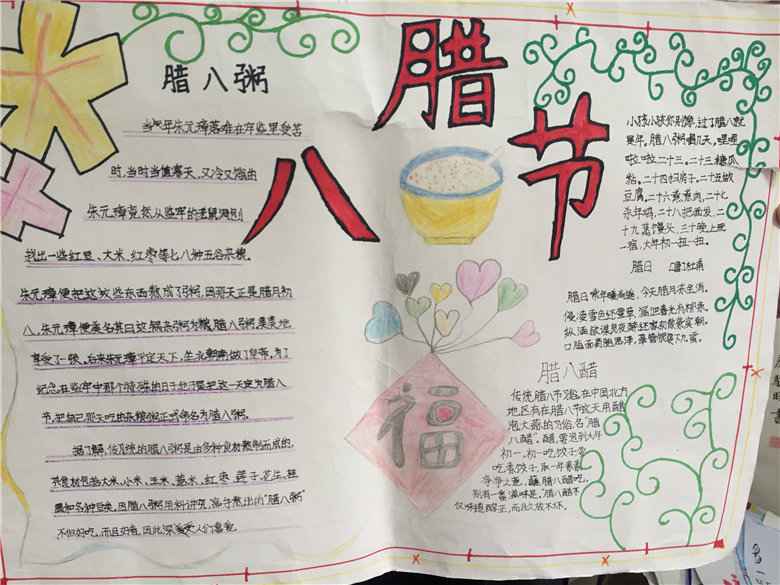 腊八节
腊八粥
当年朱元璋落难在牢监里受苦
时,当时当值寒天,又冷又饿的
朱元璋竟然从监牢的老鼠洞刨
找出一些红豆、大米、红枣等七八种五谷杂粮。
朱元璋便把这些东西熬成了粥,因那天正是腊月初
八,朱元璋便美名其曰这锅杂粥为 腊八粥美美地
享受了一顿。后来朱元璋平定天下,坐北朝南做了皇帝,为了
纪念在监牢中那个特殊的日子他 把这一天定为腊八
节,把自己那天吃的杂粮粥正式命名为腊八粥。
据了解,传统的腊八粥是由多种食材熬制而成的,
其食材包括大米、小米、玉米、薏米、红枣、莲子、花生、桂
圆和各种豆类,因腊八粥用料讲究,
不但好吃,而且好看,因此深 人们喜爱。
小孩小孩你别馋,过了腊八就
是年,腊八粥喝几天,哩哩
啦啦二十三,二十三糖瓜
粘,二十四扫房子,二十五做
豆腐,二十六煮煮肉,二十七
杀年鸡,二十八把面发,二十
九蒸馒头,三十晚上玩一
宿,大年初一扭一扭。
腊日
腊日常年暖尚遥,今天腊月冻全消。
侵凌雪色还萱草,漏泄春光有柳条。
纵酒欲谋良夜醉,还家初散紫宸朝。
口脂面药随恩泽,翠管银罂下九霄。
腊八醋
传统腊八节习俗,在中国北方
地区有在腊八节这天用醋
泡大蒜的习俗,名"腊
八醋"。醋,要泡到大年
初一,初一吃饺子要
吃素饺子,取一年素素
净净之意,蘸腊八醋吃,
别有一番滋味是,"腊八醋不
仅味道醇正,而且久放不坏。
福